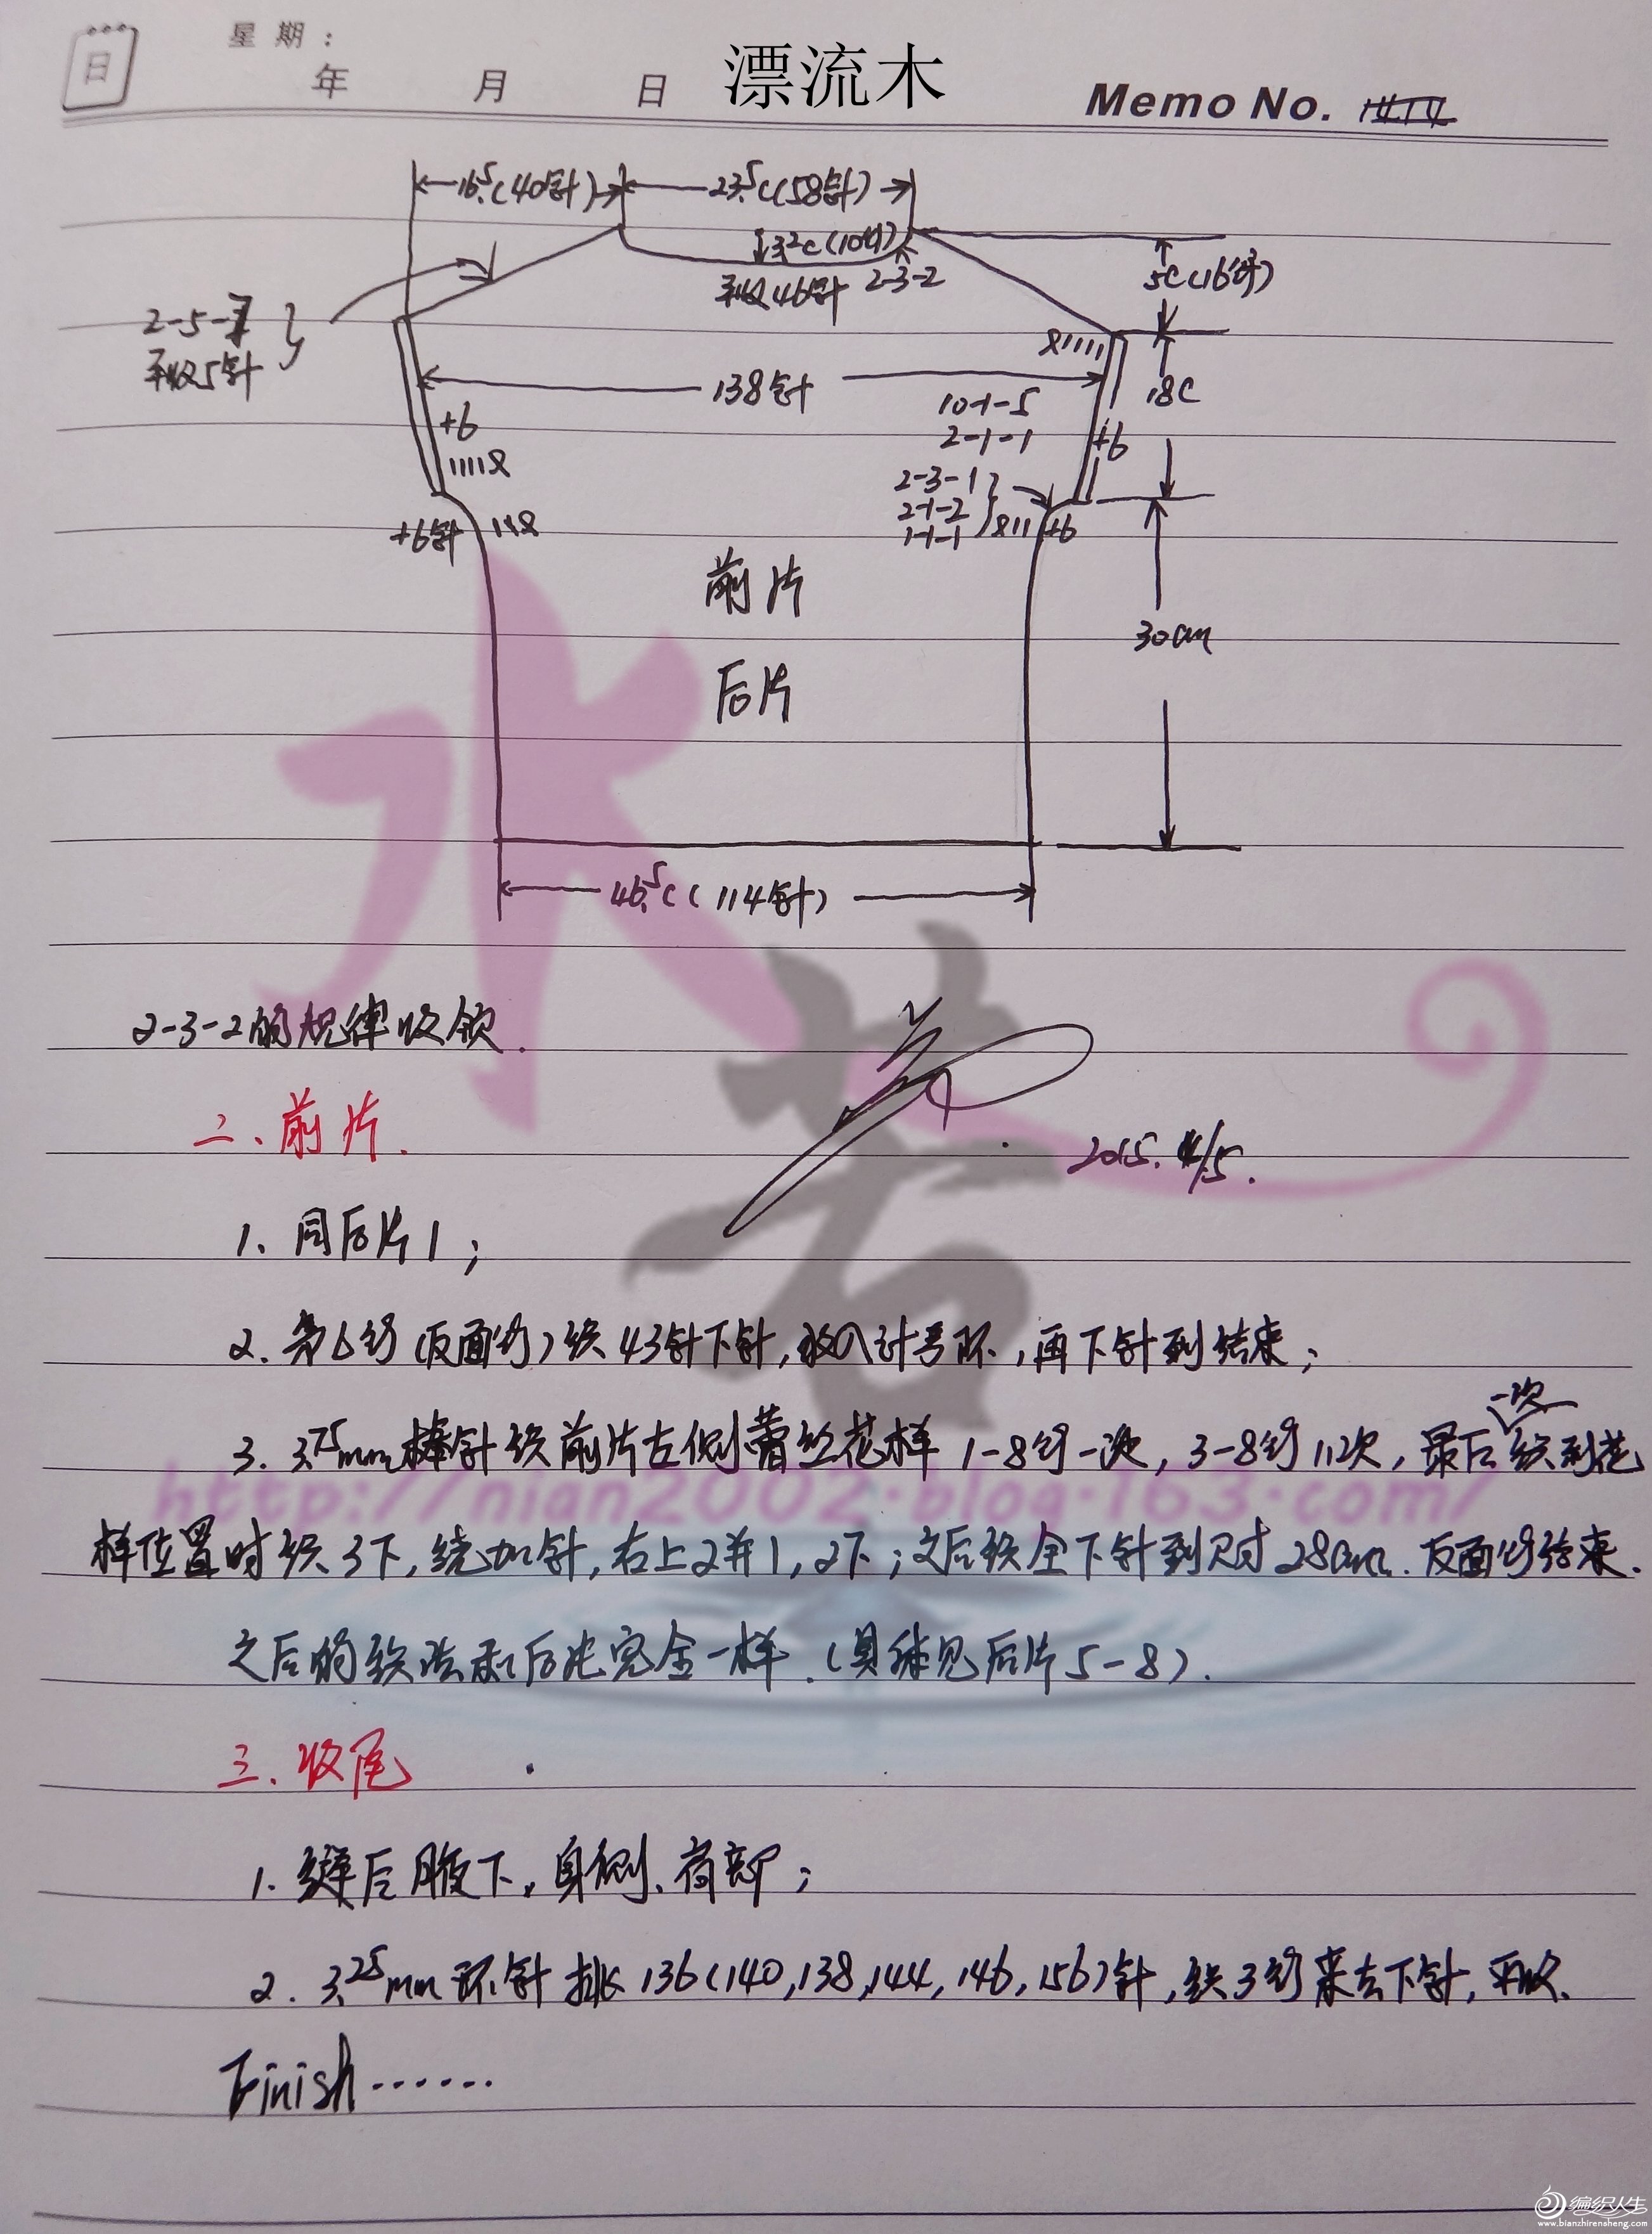 日
星期：
年 月 日 漂流木
Memo No.
16.5C(40针) 23.5C(58针)
3.2C(10行)
平收46针 2-3-2
5C(16行)
2-5-7
平收5针
138针
18C
10-1-5
2-1-1
+6
+6
2-3-1
2-1-2
1-1-1
+6针
+6
前片
后片
30cm
46.5C(114针)
2-3-2的规律收领.
二、前片.
2015.4/5.
1、同后片1；
2. 第6行(反面行)织43针下针,放入计号环,再下针到结束；
3. 3.75mm棒针织前片左侧蕾丝花样1-8行一次, 3-8行11次, 最后一次织到花
样位置时织3下, 绕加针, 右上2并1, 2下；之后织全下针到尺寸28cm. 反面行结束.
之后的织法和后片完全一样.(具体见后片5-8).
三、收尾
1. 缝合腋下、身侧、肩部；
2. 3.25mm环针挑136(140,138,144,146,156)针,织3行来去下针,平收.
Finish……
水若
http://nian2002.blog.163.com/
编织人生
www.bianzhirensheng.com